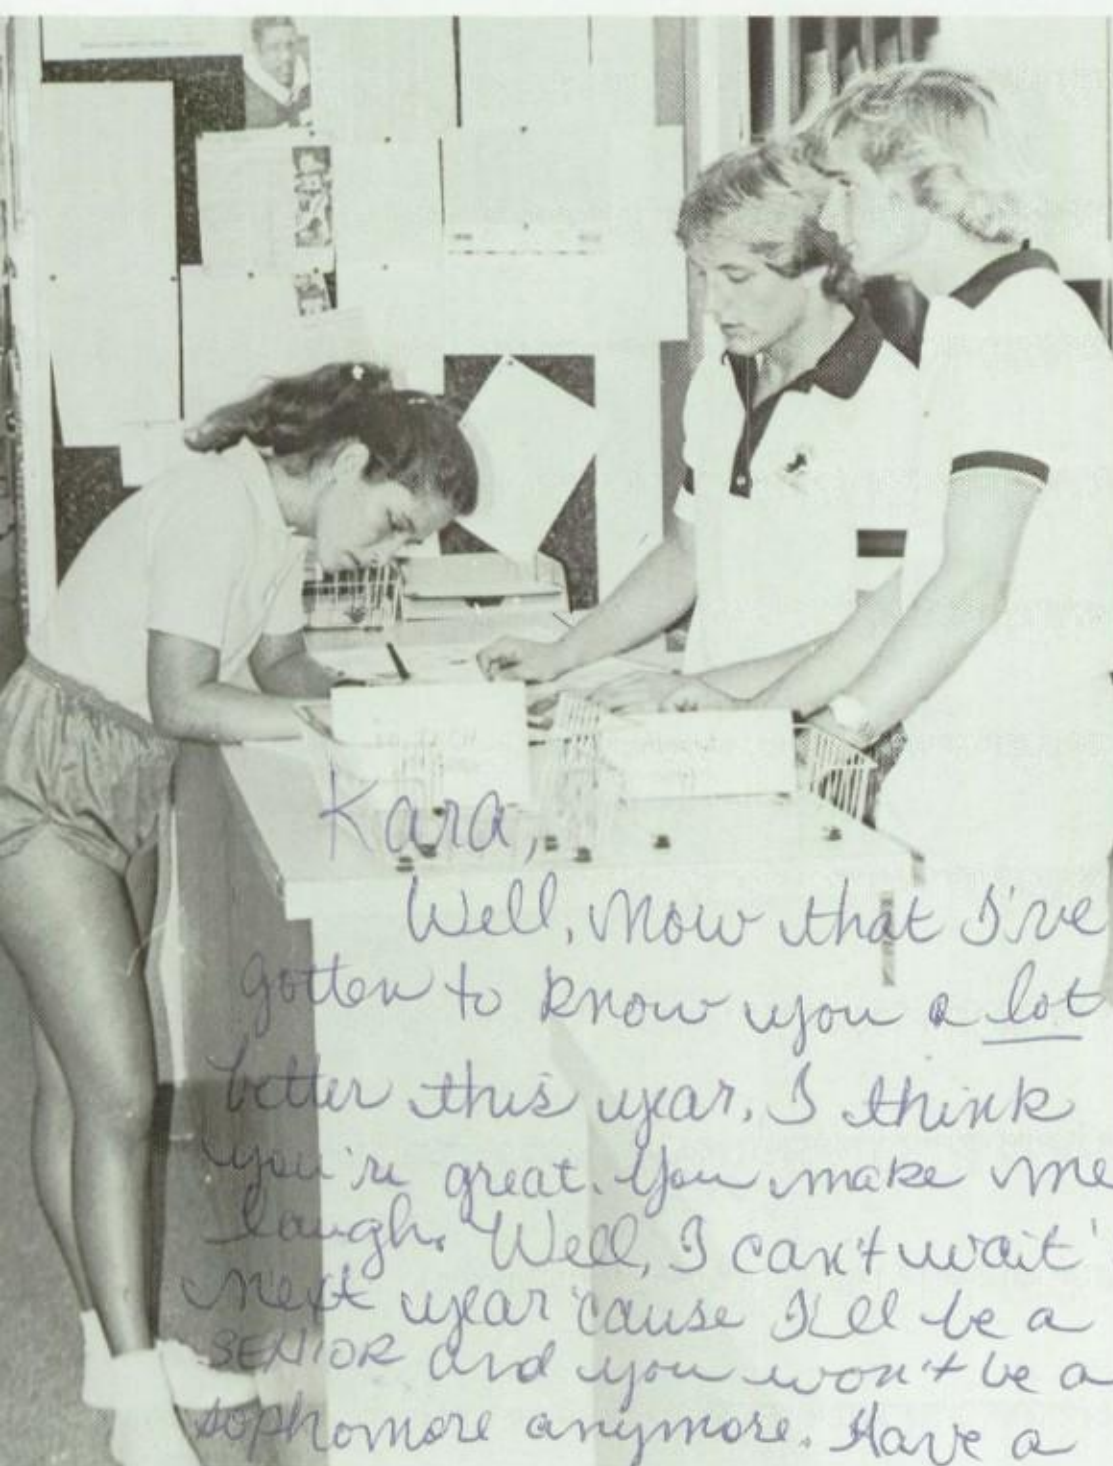 Kara,
Well, now that I've
gotten to know you a lot
better this year, I think
you're great. You make me
laugh. Well, I can't wait '
next year 'cause I'll be a
SENIOR and you won't be a
sophomore anymore. Have a